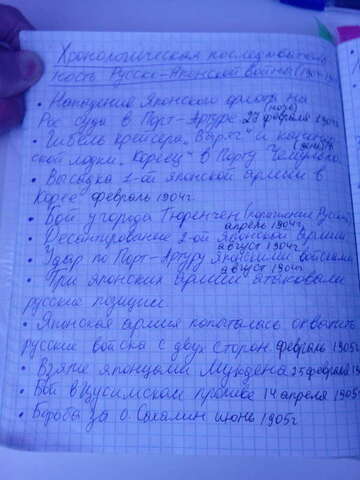 Хронологическая последователь
ность Русско-Японской войны (1904-190
• Нападение Японского флота на
Рос суда в Порт-Артуре 27 февраля 1904г.
• Гибель крейсера "Варяг" и канонер
ской лодки "Кореец" в Порту Чемульпо.
• Высадка 1-ой японской армии в
Корее февраль 1904г.
• Бой у города Тюренчен (поражение Русск
апрель 1904г.
• Десантирование 2-ой Японской армии
август 1904г.
• Удар по Порт-Артуру Японскими войсками
август 1904г.
• Три японских армии атаковали
русские позиции
• Японская армия попыталась охватить
русские войска с двух сторон февраль 1905г
• Взятие японцами Мукдена 25 февраля 19
• Бой в Цусимском проливе 14 апреля 1905г
• Борьба за о. Сахалин июнь 1905г